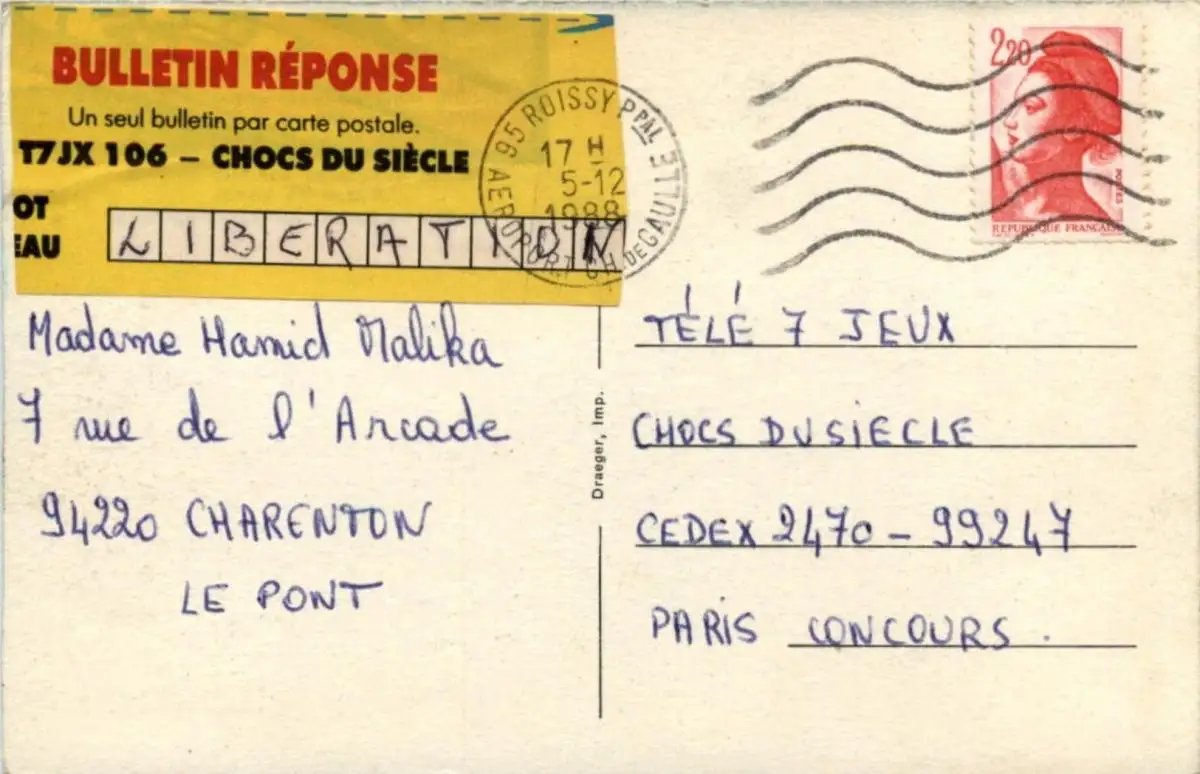 BULLETIN RÉPONSE
Un seul bulletin par carte postale.
T7JX 106 – CHOCS DU SIÈCLE
OT
EAU
LIBERATION
95 ROISSY PPAL
AEROPORT CH DE GAULLE
17 H
5-12
1988
2,20
POSTES
REPUBLIQUE FRANÇAISE
Madame Hamid Malika
7 rue de l'Arcade
94220 CHARENTON
LE PONT
Draeger, Imp.
TÉLÉ 7 JEUX
CHOCS DU SIECLE
CEDEX 2470 - 99247
PARIS CONCOURS.